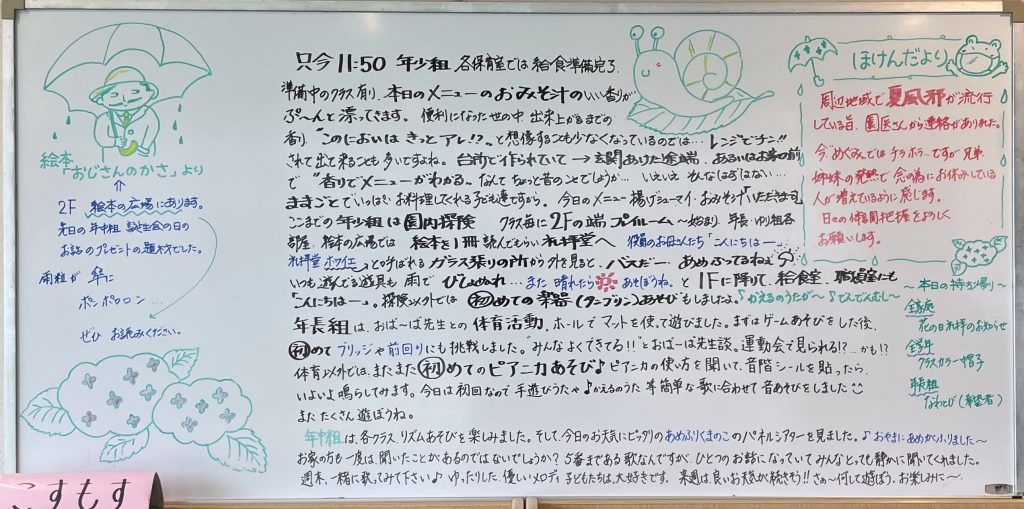 絵本
「おじさんのかさ」より
⇧
2F 絵本の広場にあります。
先日の年中組 誕生会の日の
お話のプレゼントの題材でした。
雨粒が 傘に
ポンポロロン…
ぜひ お読みください。
只今11:50 年少組 各保育室では給食準備完了、
準備中のクラス有り、本日のメニューのおみそ汁のいい香りが
ぷ〜んと漂ってきます。便利になった世の中 出来上がるまでの
香り "このにおいは きっと アレ!?"と想像することも少なくなっているのでは… レンジでチン!!
されて出て来ることも多いですよね。台所で作られていて→玄関あけた途端、あるいはお家の前
で "香りでメニューがわかる。なんて ちょっと昔のことでしょうか… いえいえ そんなはずはない…
ままごとでいっぱいお料理してくれる子ども達ですから。今日のメニュー 揚げシューマイ・おみそ汁
ここまでの 年少組は園内探険 クラス毎に2Fの端、プレイルーム〜始まり、年長・ゆり組各
部屋、絵本の広場では 絵本を1冊読んでもらい礼拝堂へ 役員のお母さんたち「こんにちは〜」
礼拝堂 ホワイエ と呼ばれる ガラス張りの所から外を見ると、バスだー あめふってるねぇ
いつも遊んでる遊具も 雨で びしょぬれ… また 晴れたら あそぼうね。と 1Fに降りて、給食室、職員室にも
「こんにちは〜」。探険以外では 初めての楽器(タンブリン)あそびもしましたよ。♪かえるのうたが〜♪でんでんむし〜
年長組は、おば〜ば先生との 体育活動、ホールで マットを使って遊びました。まずはゲームあそびをした後、
初めて ブリッジや前回りにも挑戦しました。"みんなよくできてる!!"とおば〜ば先生談。運動会で見られる!?…かも!?
体育以外では、またまた初めてのピアニカあそび♪ピアニカの使い方を聞いて、音階シールを貼ったら、
いよいよ鳴らしてみます。今日は初回なので 手遊びうたや♪かえるのうた 等簡単な歌に合わせて音あそびをしました
また たくさん遊ぼうね。
年中組は、各クラス、リズムあそびを楽しみました。そして、今日のお天気にピッタリのあめふりくまのこのパネルシアターを見ました。♪おやまにあめがふりました〜
お家の方も一度は、聞いたことがあるのではないでしょうか?5番まである歌なんですが、ひとつのお話になっていてみんなとっても静かに聞いてくれました。
週末、一緒に歌ってみて下さい♪ ゆったりした、優しいメロディ 子どもたちは、大好きです。来週は、良いお天気が続きそう!!さぁ〜何して遊ぼう。お楽しみに〜。
ほけんだより
周辺地域で夏風邪が流行
している旨、園医さんから連絡がありました。
今めぐみでは チラホラーですが兄弟
姉妹の発熱で念の為にお休みしている
人が増えているように感じます。
日々の体調把握をよろしく
お願いします。
〜本日の持ち帰り〜
全家庭
花の日礼拝のお知らせ
全学年
クラスカラー帽子
年長組
なわとび(希望者)
こすもす